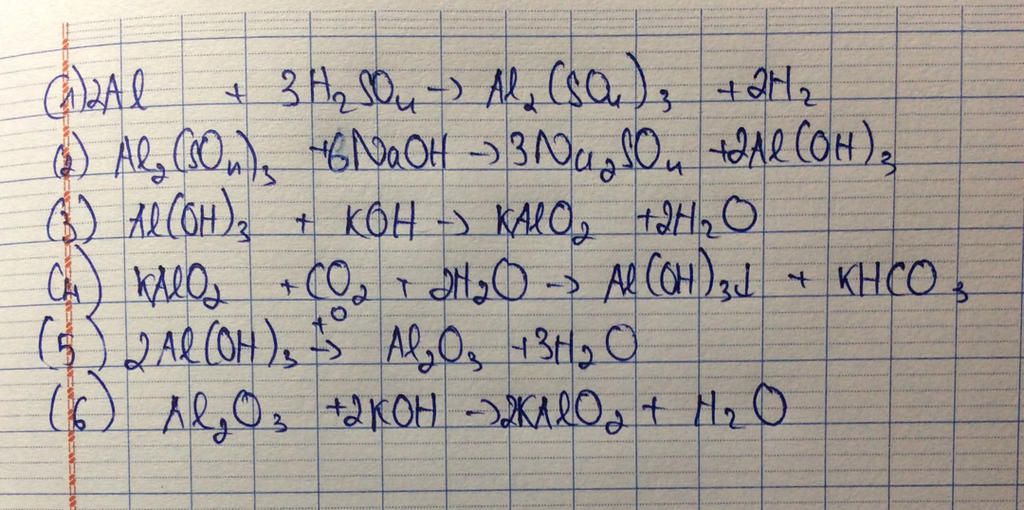 (1) 2Al + 3H₂SO₄ → Al₂(SO₄)₃ + 2H₂
(2) Al₂(SO₄)₃ + 6NaOH → 3Na₂SO₄ + 2Al(OH)₃
(3) Al(OH)₃ + KOH → KAlO₂ + 2H₂O
(4) KAlO₂ + CO₂ + 2H₂O → Al(OH)₃↓ + KHCO₃
(5) 2Al(OH)₃ →t° Al₂O₃ + 3H₂O
(6) Al₂O₃ + 2KOH → 2KAlO₂ + H₂O